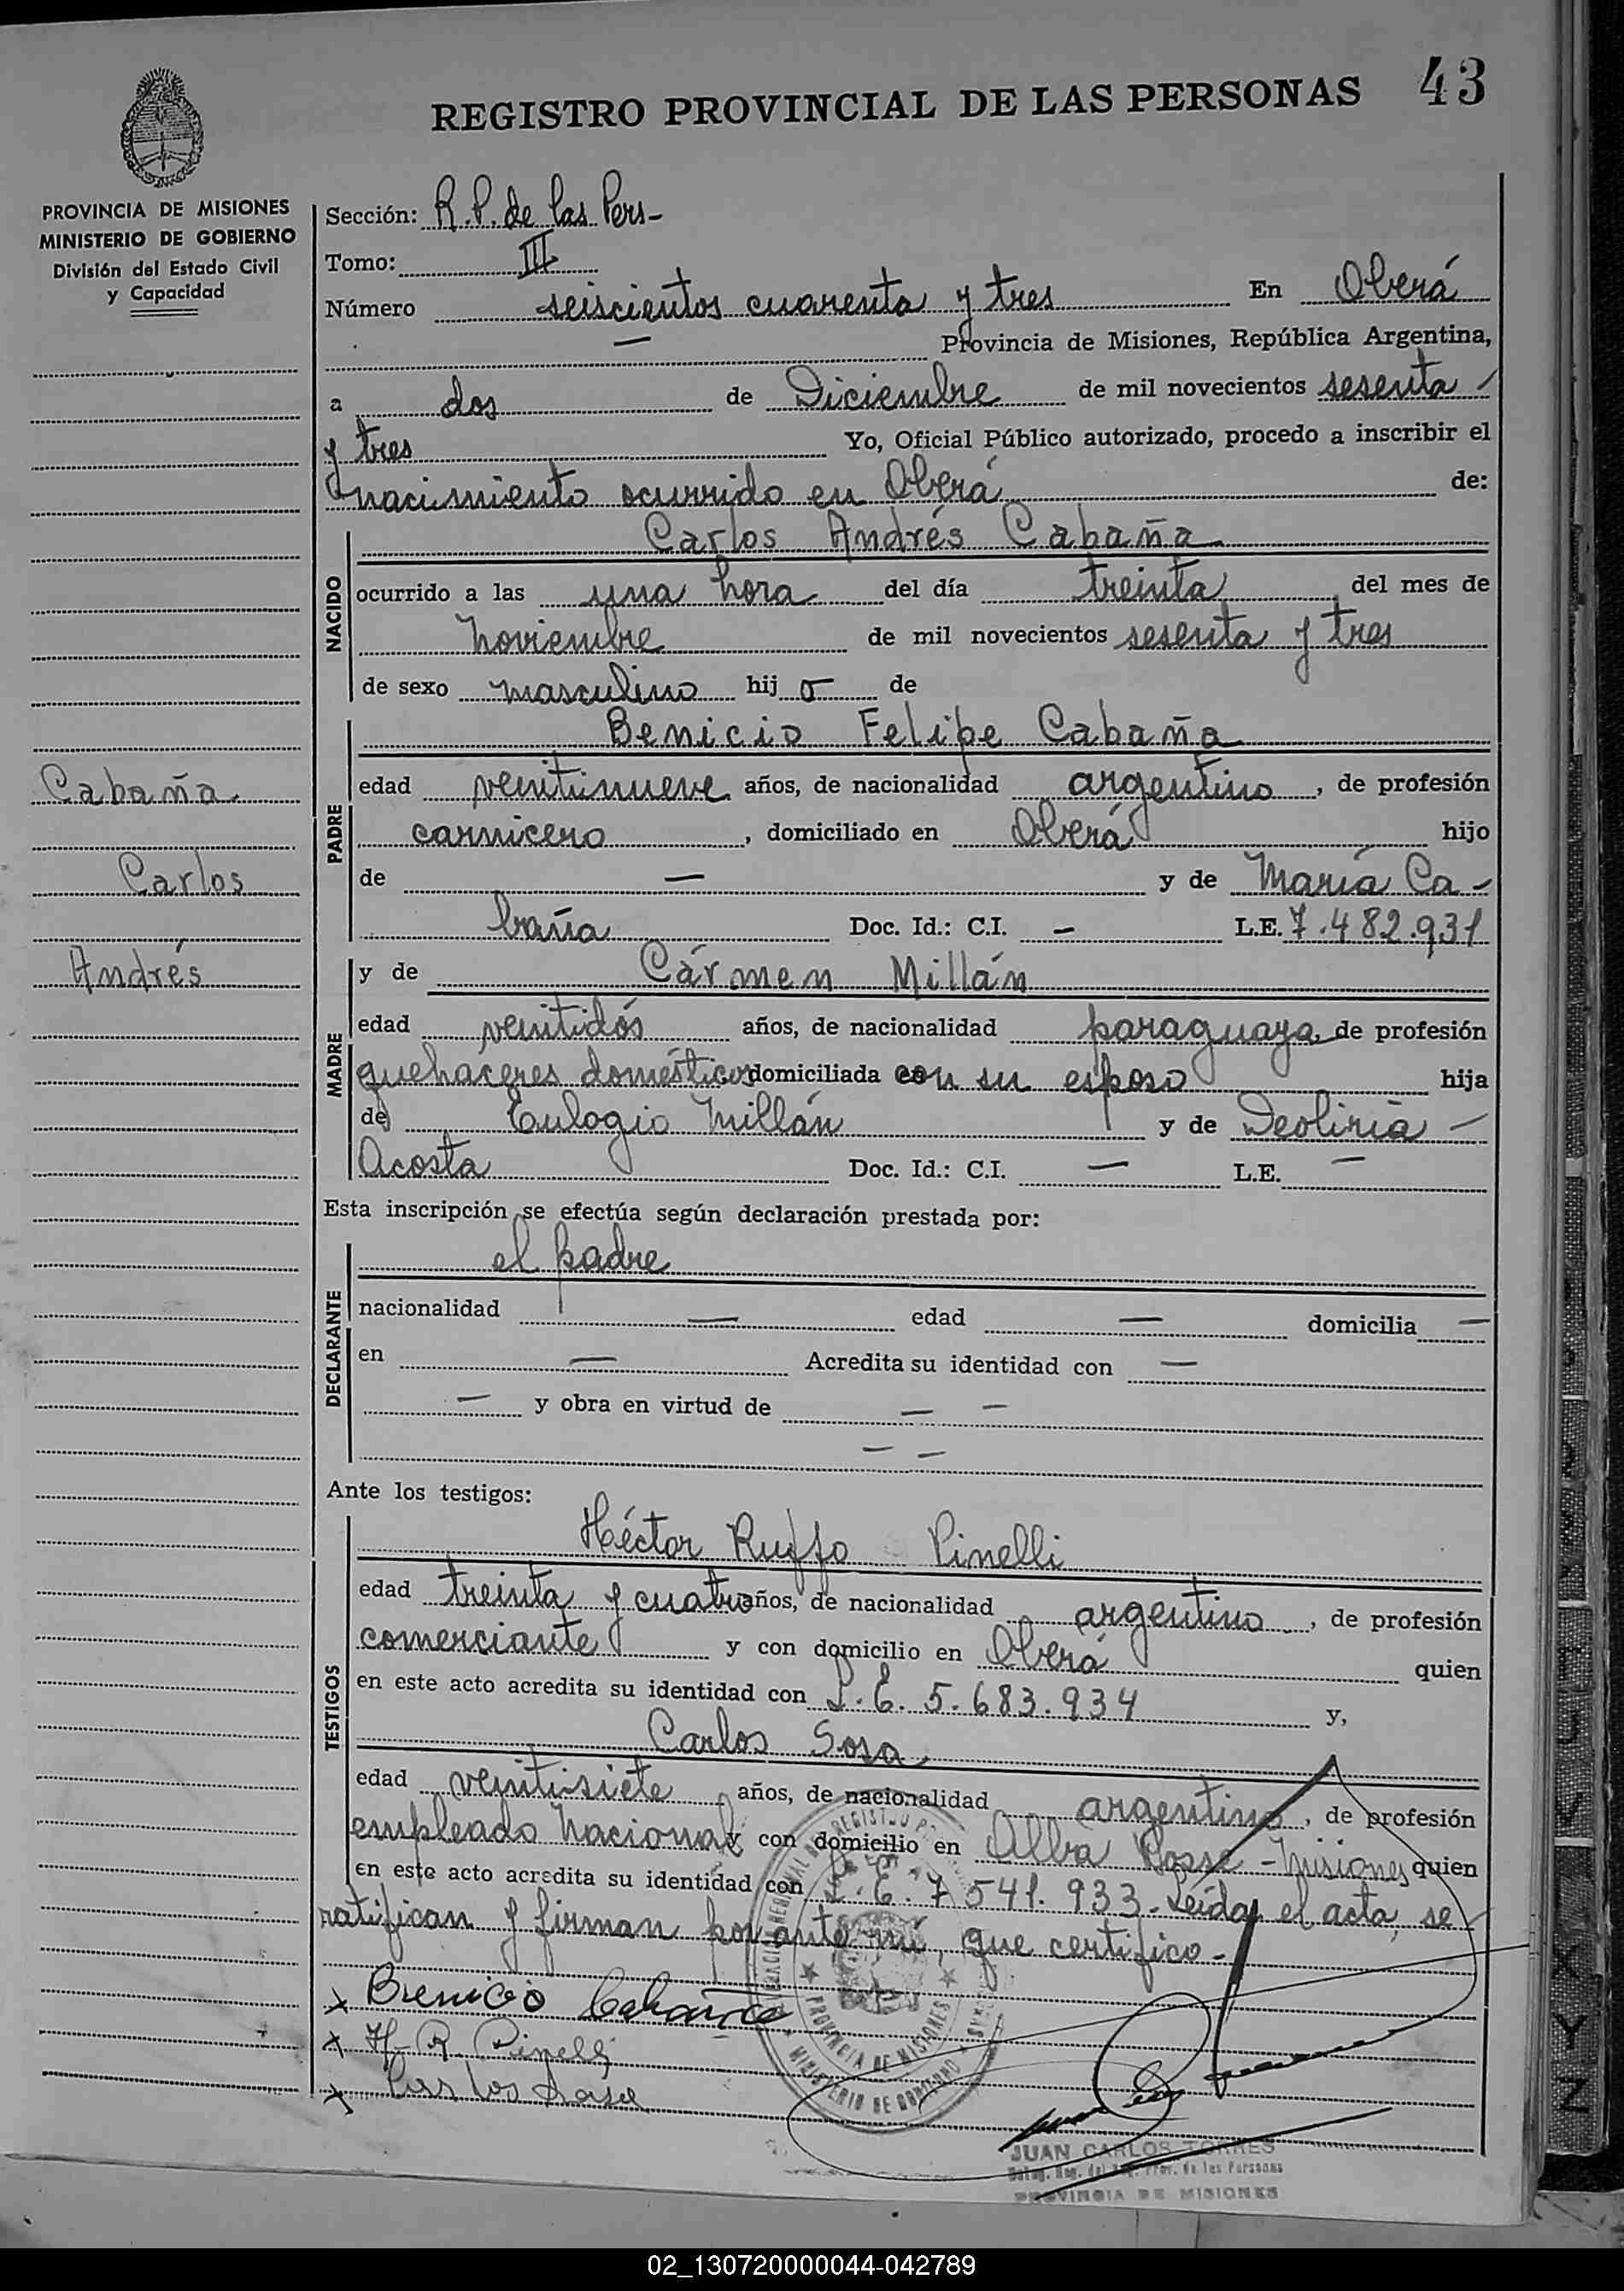 REGISTRO PROVINCIAL DE LAS PERSONAS 43
PROVINCIA DE MISIONES
MINISTERIO DE GOBIERNO
División del Estado Civil
y Capacidad
Sección: R.P. de las Pers-
Tomo: III
Número seiscientos cuarenta y tres En Oberá
— Provincia de Misiones, República Argentina,
a dos de Diciembre de mil novecientos sesenta
y tres Yo, Oficial Público autorizado, procedo a inscribir el
nacimiento ocurrido en Oberá de:
NACIDO
Carlos Andrés Cabaña
ocurrido a las una hora del día treinta del mes de
Noviembre de mil novecientos sesenta y tres
de sexo masculino hij o de
PADRE
Benicio Felipe Cabaña
Cabaña
Carlos
Andrés
edad veintinueve años, de nacionalidad argentino, de profesión
carnicero, domiciliado en Oberá hijo
de — y de María Ca-
baña Doc. Id.: C.I. — L.E. 7.482.931
MADRE
y de Cármen Millán
edad veintidós años, de nacionalidad paraguaya, de profesión
quehaceres domésticos domiciliada con su esposo hija
de Eulogio Millán y de Deolinia
Acosta Doc. Id.: C.I. — L.E. —
Esta inscripción se efectúa según declaración prestada por:
DECLARANTE
el padre
nacionalidad — edad — domicilia —
en — Acredita su identidad con —
— y obra en virtud de — —
— —
Ante los testigos:
TESTIGOS
Héctor Ruffo Pinelli
edad treinta y cuatro años, de nacionalidad argentino, de profesión
comerciante y con domicilio en Oberá quien
en este acto acredita su identidad con L.E. 5.683.934 y,
Carlos Sosa
edad veintisiete años, de nacionalidad argentino, de profesión
empleado Nacional y con domicilio en Alba Posse - Misiones quien
en este acto acredita su identidad con L.E. 7 541.933. Leída el acta, se
ratifican y firman por ante mí, que certifico-
x Benicio Cabaña
x H. R. Pinelli
x Carlos Sosa
PROVINCIA DE MISIONES
MINISTERIO DE GOBIERNO
JUAN CARLOS TORRES
Prov. de las Personas
PROVINCIA DE MISIONES
02_130720000044-042789